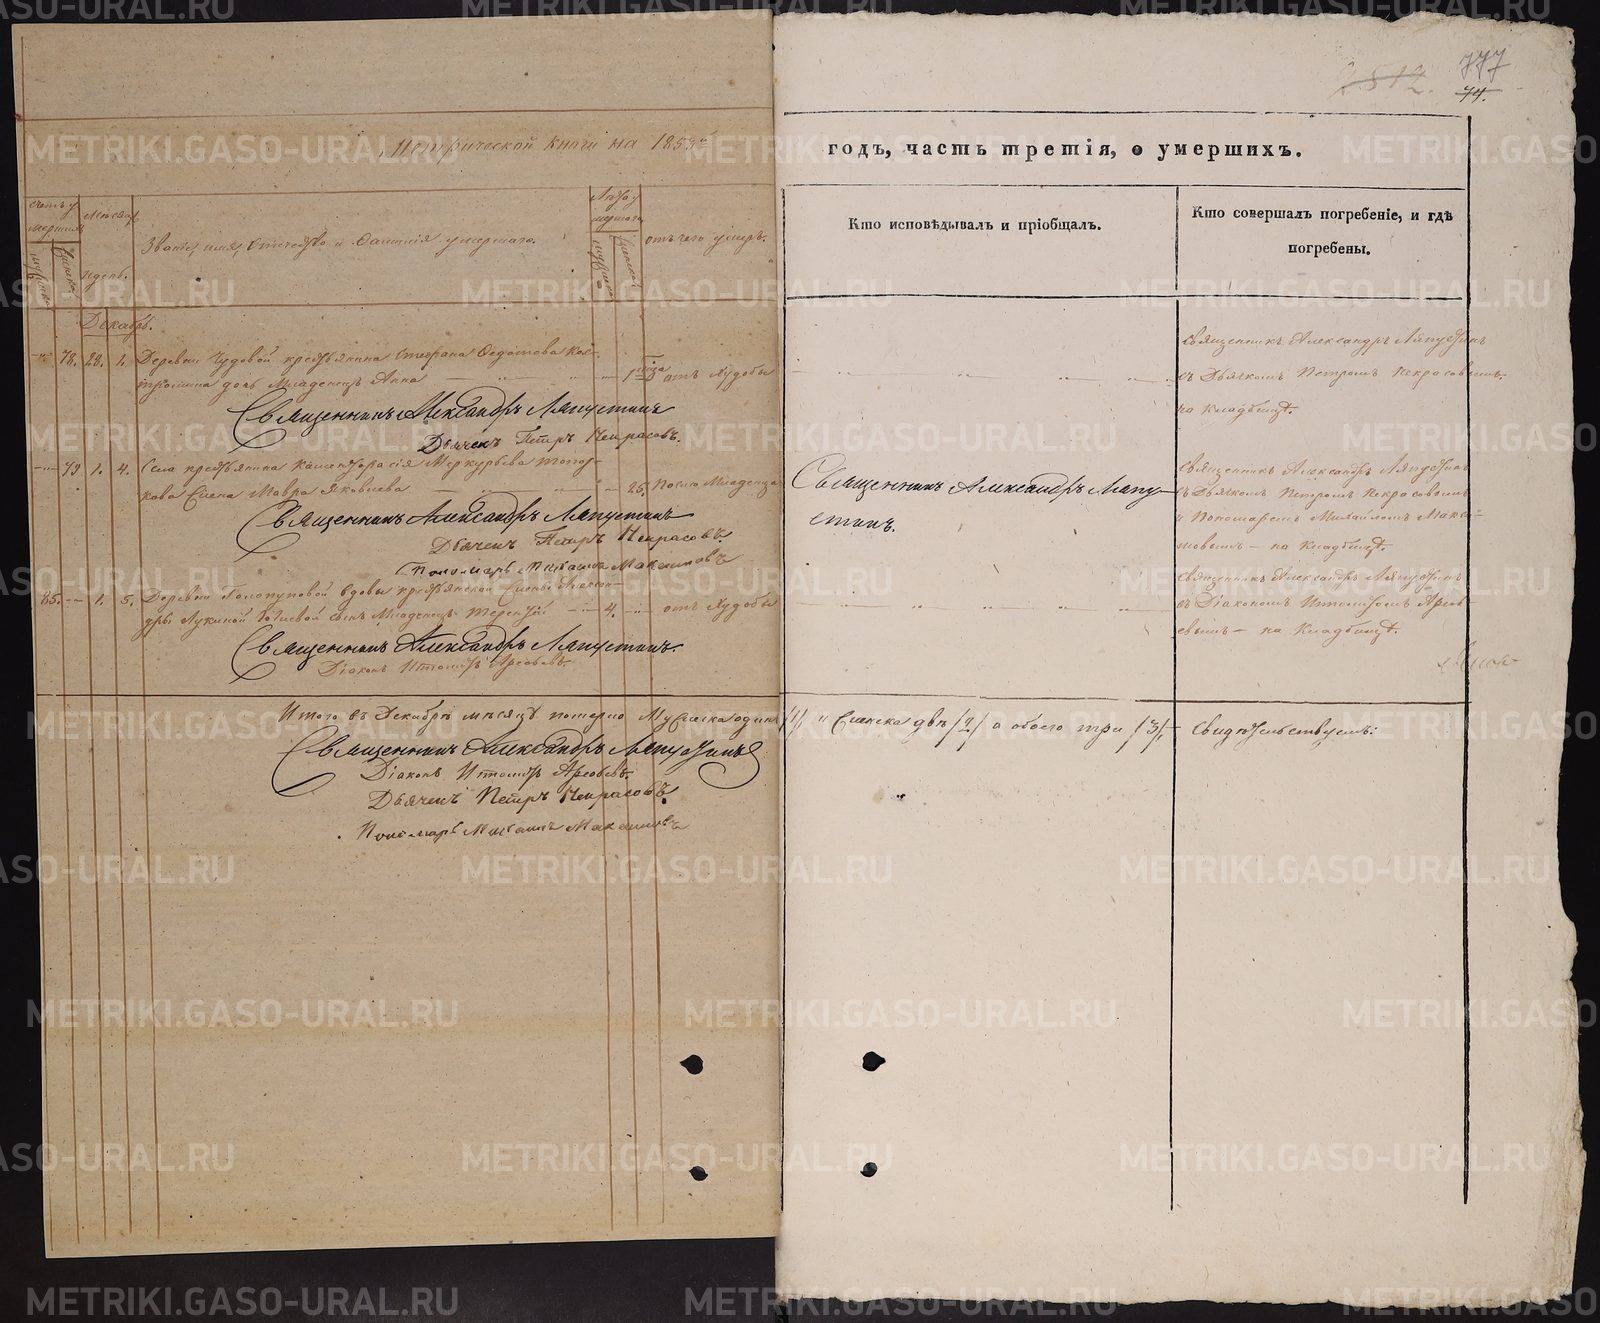 777
2812.
74.
Метрической книги на 1853й
годъ, часть третія, о умершихъ.
счетъ умершихъ
Мѣсяцъ и день.
мужеска
женска
Званіе, имя, отчество и фамилія умершаго.
Лѣта умершаго
мужеска
женска
отъ чего умеръ.
Кто исповѣдывалъ и пріобщалъ.
Кто совершалъ погребеніе, и гдѣ
погребены.
Декабрь.
78. 28. 1. Деревни Чудовой крестьянина Стефана Федотова Кос-
тромина дочь Младенецъ Анна 1 отъ худобы
Священникъ Александръ Ляпустинъ
Дьячекъ Петръ Некрасовъ.
священникъ Александръ Ляпустинъ
съ Дьячкомъ Петромъ Некрасовымъ.
на кладбищѣ.
79. 1. 4. Села крестьянина Меркурьева Топор-
кова жена Мавра Яковлева 26. После Младенца
Священникъ Александръ Ляпустинъ
Дьячекъ Петръ Некрасовъ.
Пономарь Михаилъ Максимовъ
Священникъ Александръ Ляпу-
стинъ.
священникъ Александръ Ляпустинъ
съ Дьячкомъ Петромъ Некрасовымъ
и Пономаремъ Михайломъ Макси-
мовымъ – на кладбищѣ.
85. 1. 5. Деревни вдовы крестьянской жены Алексан-
дры Лукиной сынъ Младенецъ Терентій 4. отъ худобы
Священникъ Александръ Ляпустинъ.
Діаконъ Ипполитъ Арефьевъ.
священникъ Александръ Ляпустинъ
съ Діакономъ Ипполитомъ Арефь-
евымъ – на кладбищѣ.
Итого въ Декабрѣ мѣсяцѣ померло Мужеска одинъ /1/, и Женска двѣ /2/ а обоего три /3/, свидѣтельствуемъ:
Священникъ Александръ Ляпустинъ
Діаконъ Ипполитъ Арефьевъ.
Дьячекъ Петръ Некрасовъ.
Пономарь Михаилъ Максимовъ
METRIKI.GASO-URAL.RU